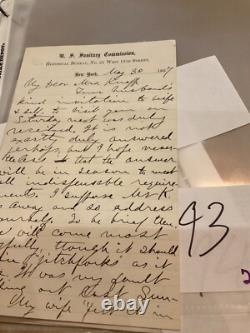 U. S. Sanitary Commission,
Historical Bureau, No. 21 West 12th Street,
New York, May 30 1867
My dear Mrs Knapp
Your husband's
kind invitation to wife
& self to visit you on
Saturday next was duly
received. It is not
exactly duly answered
perhaps, but I hope never-
theless that the answer
will be in season to meet
all indispensable require-
ments. I suppose Mr K
is away and so address
yourself. To be brief then
we will come most
though it should
rain "pitchforks" as it
was my fault
My wife "jest" as in
43